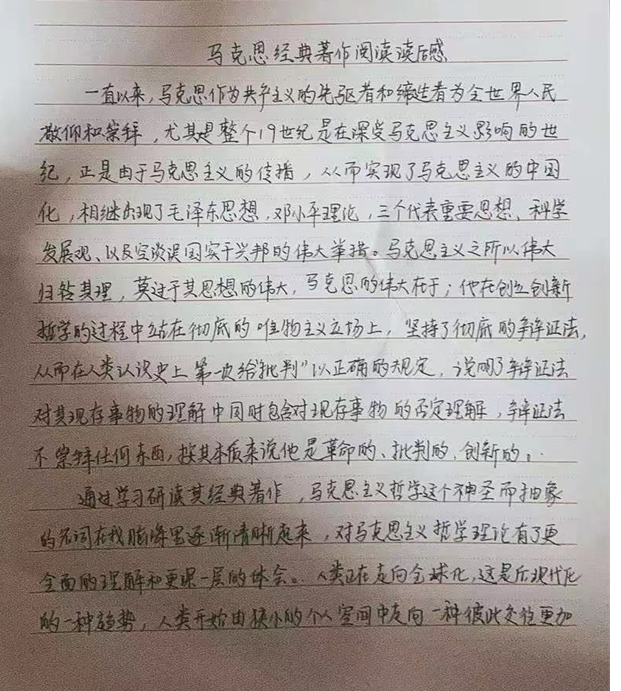 马克思经典著作阅读读后感
一直以来，马克思作为共产主义的先驱者和缔造者为全世界人民
敬仰和崇拜，尤其是整个19世纪是在深受马克思主义影响的世
纪，正是由于马克思主义的传播，从而实现了马克思主义的中国
化，相继出现了毛泽东思想，邓小平理论，三个代表重要思想、科学
发展观、以及空谈误国实干兴邦的伟大举措。马克思主义之所以伟大
归结其理，莫过于其思想的伟大，马克思的伟大在于；他在创立创新
哲学的过程中站在彻底的唯物主义立场上，坚持了彻底的辩证法，
从而在人类认识史上第一次给"批判"以正确的规定，说明了辩证法
对其现存事物的理解中同时包含对现存事物的否定理解，辩证法
不崇拜任何东西，按其本质来说他是革命的、批判的、创新的。
通过学习研读其经典著作，马克思主义哲学这个神圣而抽象
的名词在我脑海里逐渐清晰起来，对马克思主义哲学理论有了更
全面的理解和更深一层的体会。人类正在走向全球化，这是后现代化
的一种趋势，人类开始由狭小的个人空间中走向一种彼此交往更加